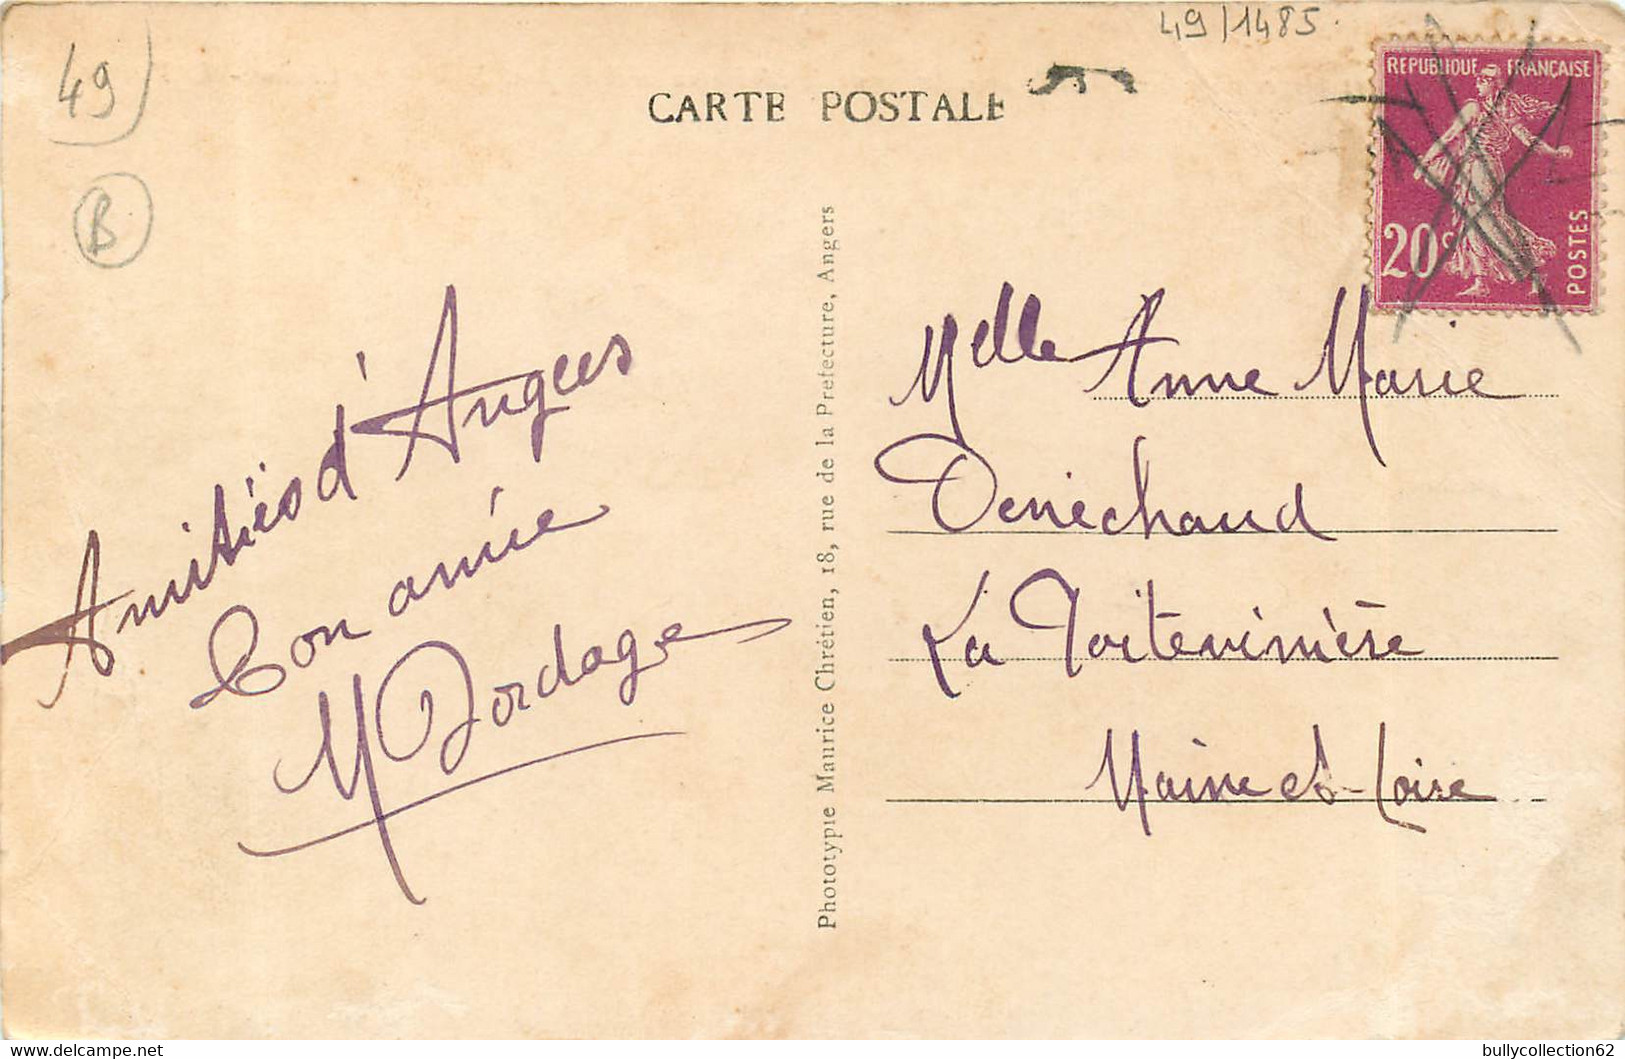 49/1485
49
B
CARTE POSTALE
REPUBLIQUE FRANÇAISE
20c
POSTES
Amitiés d'Angers
Ton amie
M Dordage
Phototypie Maurice Chrétien, 18, rue de la Préfecture, Angers
Melle Anne Marie
Denéchaud
La Poitevinière
Maine et-Loire
bullycollection62